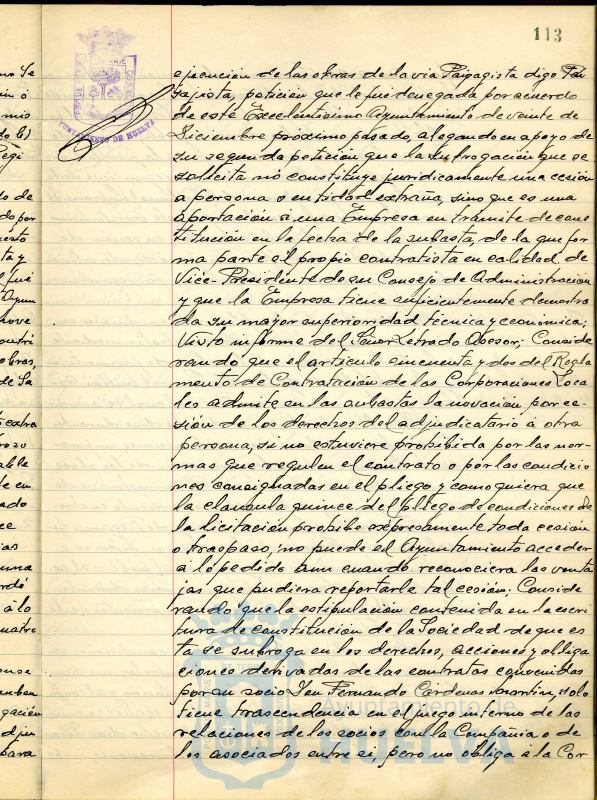 113
AYUNTAMIENTO DE HUELVA
ejecución de las obras de la via Paygagista digo Pai
sajista, petición que le fué denegada por acuerdo
de este Excelentísimo Ayuntamiento de veinte de
Diciembre próximo pasado, alegando en apoyo de
su segunda petición que la subrogación que se
solicita no constituye jurídicamente una cesión
a persona o entidad extraña, sino que es una
aportación a una Empresa en trámite de cons
titución en la fecha de la subasta, de la que for
ma parte el propio contratista en calidad de
Vice-Presidente de su Consejo de Administración
y que la Empresa tiene suficientemente demostra
da su mayor superioridad técnica y económica;
Visto informe del Señor Letrado Asesor; Conside
rando que el artículo cincuenta y dos del Regla
mento de Contratación de las Corporaciones Loca
les admite en las subastas la novación por ce-
sión de los derechos del adjudicatario a otra
persona, si no estuviere prohibida por las nor-
mas que regulen el contrato o por las condicio
nes consignadas en el pliego y como quiera que
la clausula quince del pliego de condiciones de
la licitación prohibe expresamente toda cesión
o traspaso, no puede el Ayuntamiento acceder
a lo pedido aun cuando reconociera las venta
jas que pudiera reportarle tal cesión; Conside
rando que la estipulación contenida en la escri
tura de constitución de la Sociedad de que es
ta se subroga en los derechos, acciones y obliga
ciones derivadas de las contratas convenidas
por su socio Don Fernando Cárdenas Morantin, solo
tiene trascendencia en el juego interno de las
relaciones de los socios con la Compañia o de
los asociados entre si, pero no obliga a la Cor
Ayuntamiento de
HUELVA